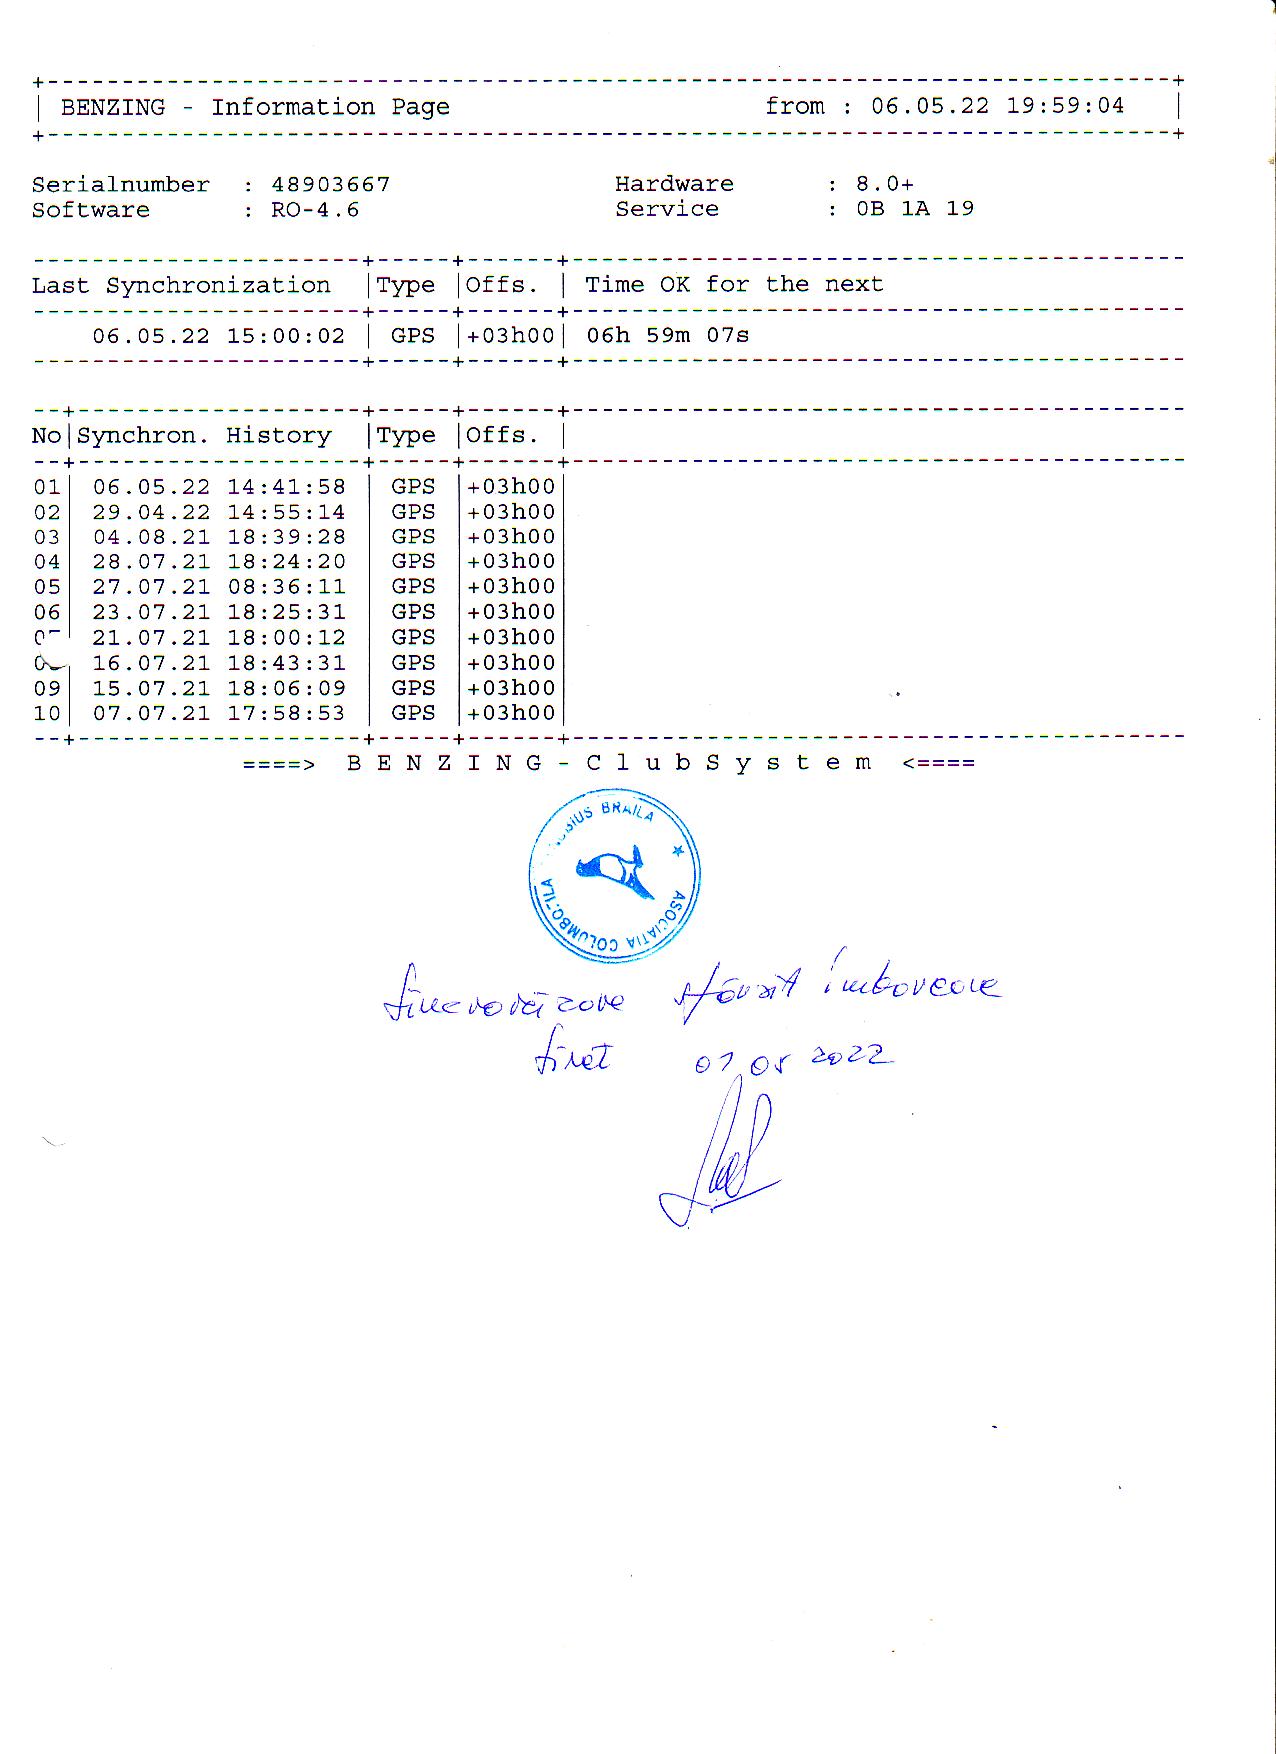 BENZING - Information Page from : 06.05.22 19:59:04
Serialnumber : 48903667 Hardware : 8.0+
Software : RO-4.6 Service : 0B 1A 19
Last Synchronization |Type |Offs. | Time OK for the next
06.05.22 15:00:02 | GPS |+03h00| 06h 59m 07s
No|Synchron. History |Type |Offs. |
01| 06.05.22 14:41:58 | GPS |+03h00|
02| 29.04.22 14:55:14 | GPS |+03h00|
03| 04.08.21 18:39:28 | GPS |+03h00|
04| 28.07.21 18:24:20 | GPS |+03h00|
05| 27.07.21 08:36:11 | GPS |+03h00|
06| 23.07.21 18:25:31 | GPS |+03h00|
21.07.21 18:00:12 | GPS |+03h00|
16.07.21 18:43:31 | GPS |+03h00|
09| 15.07.21 18:06:09 | GPS |+03h00|
10| 07.07.21 17:58:53 | GPS |+03h00|
====> B E N Z I N G - C l u b S y s t e m <====
ASOCIATIA BRAILA
îmbarcare
07 05 2022